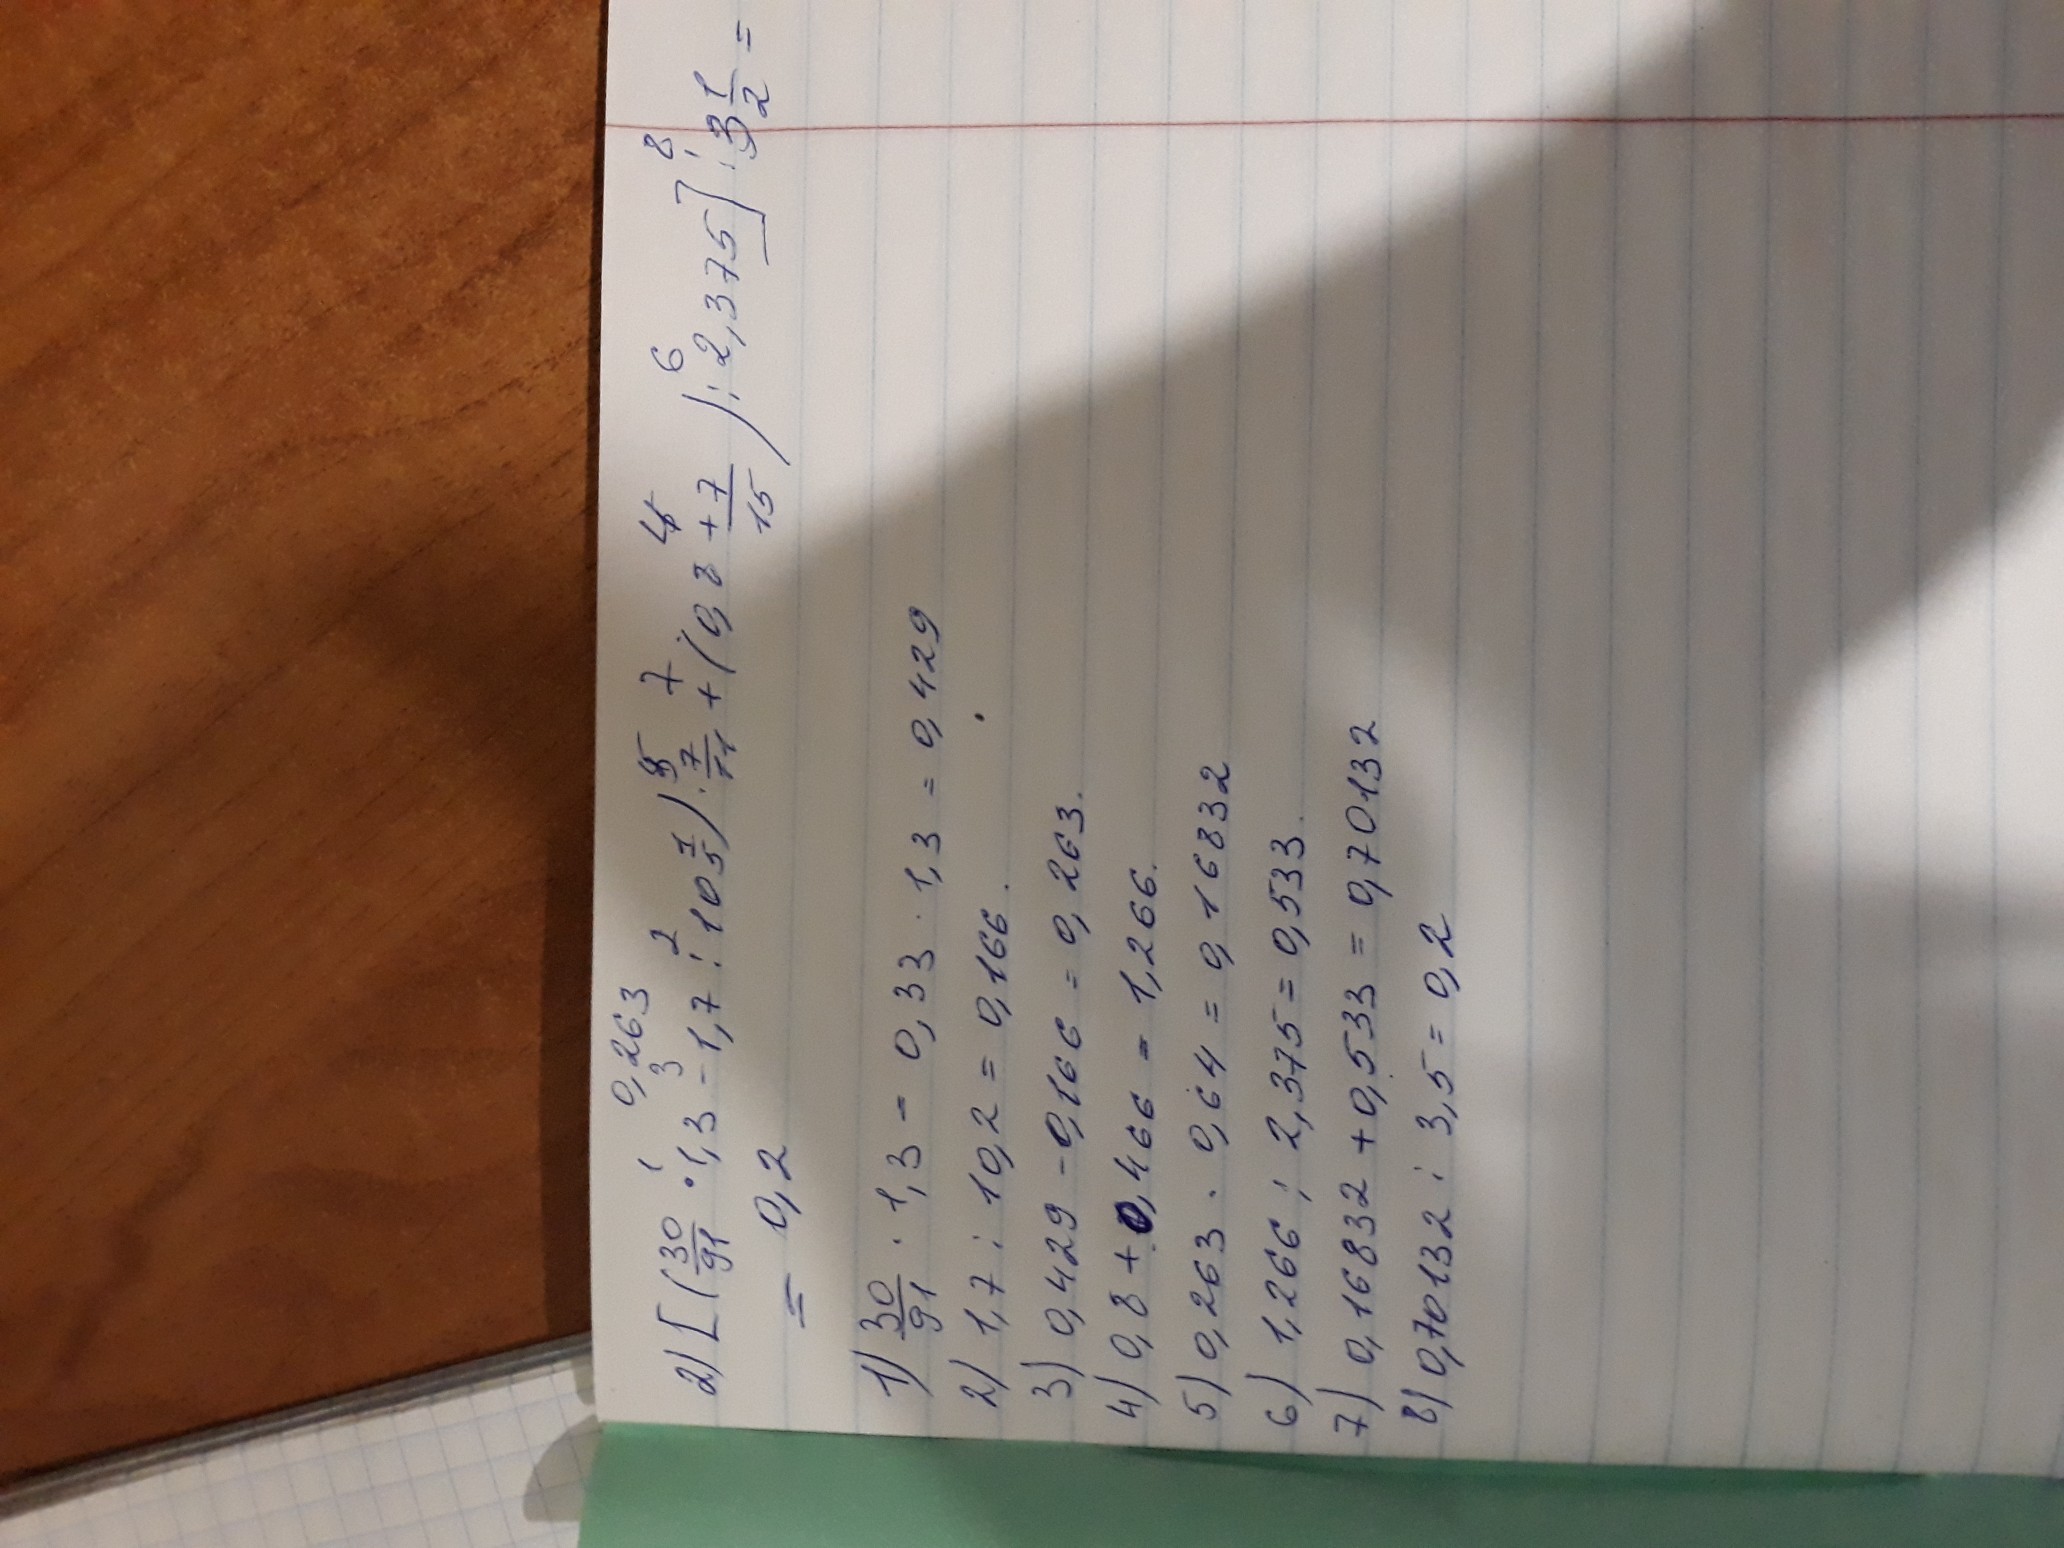 0,263
1 3 2 5 7 4 6 8
2) [(30/91 · 1,3 - 1,7 : 10 1/5) · 7/11 + (0,8 + 7/15) : 2,375] : 3 1/2 =
= 0,2
1) 30/91 · 1,3 = 0,33 · 1,3 = 0,429
2) 1,7 : 10,2 = 0,166.
3) 0,429 - 0,166 = 0,263.
4) 0,8 + 0,466 = 1,266.
5) 0,263 · 0,64 = 0,16832
6) 1,266 : 2,375 = 0,533.
7) 0,16832 + 0,533 = 0,70132
8) 0,70132 : 3,5 = 0,2